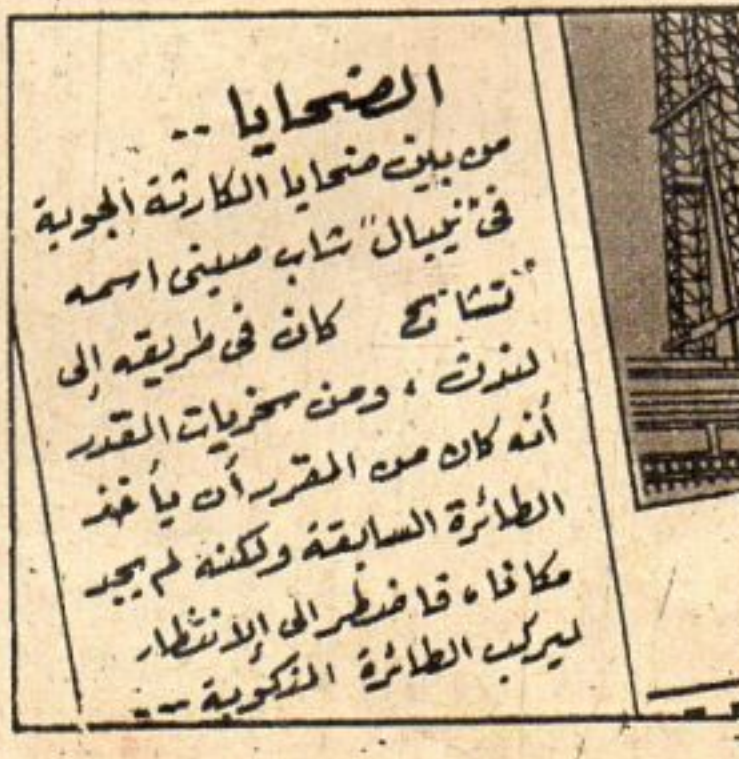 الضحايا ..
من بين ضحايا الكارثة الجوية
فى "نيبال" شاب صينى اسمه
"تشانج" كان فى طريقه إلى
لندن ، ومن سخريات القدر
أنه كان من المقرر أن يأخذ
الطائرة السابقة ولكنه لم يجد
مكانا، فاضطر الى الانتظار
ليركب الطائرة المنكوبة ..